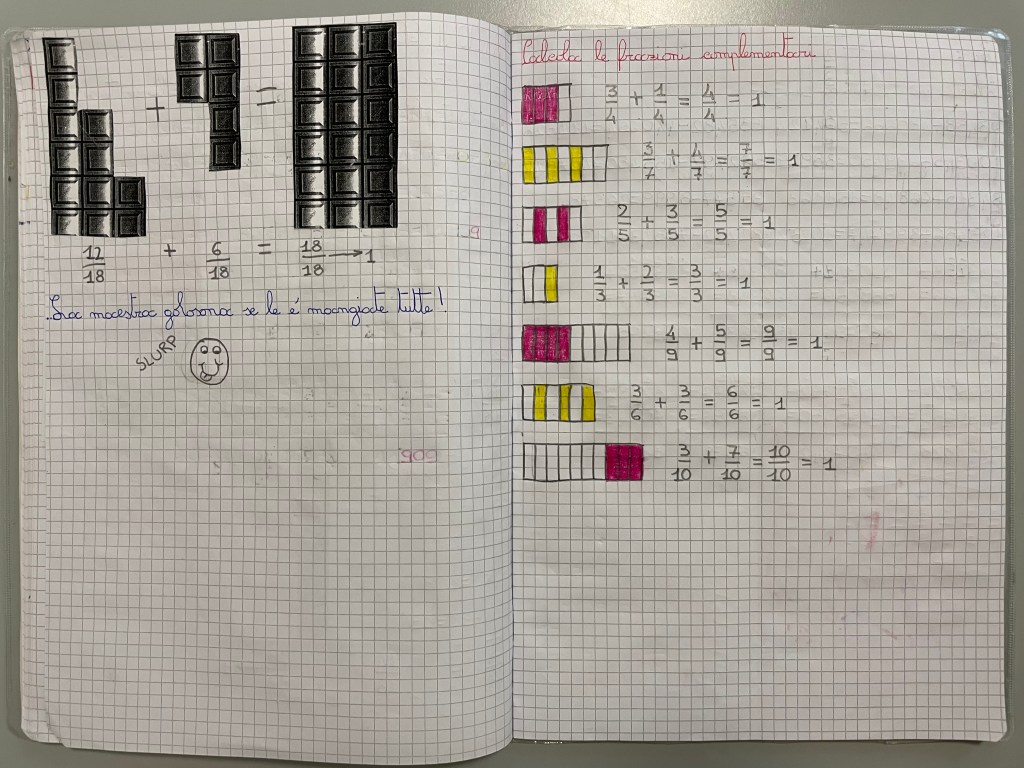 + =
12/18 + 6/18 = 18/18 → 1
La maestra golosona se le é mangiate tutte!
SLURP
Calcola le frazioni complementari
3/4 + 1/4 = 4/4 = 1
3/7 + 4/7 = 7/7 = 1
2/5 + 3/5 = 5/5 = 1
1/3 + 2/3 = 3/3 = 1
4/9 + 5/9 = 9/9 = 1
3/6 + 3/6 = 6/6 = 1
3/10 + 7/10 = 10/10 = 1